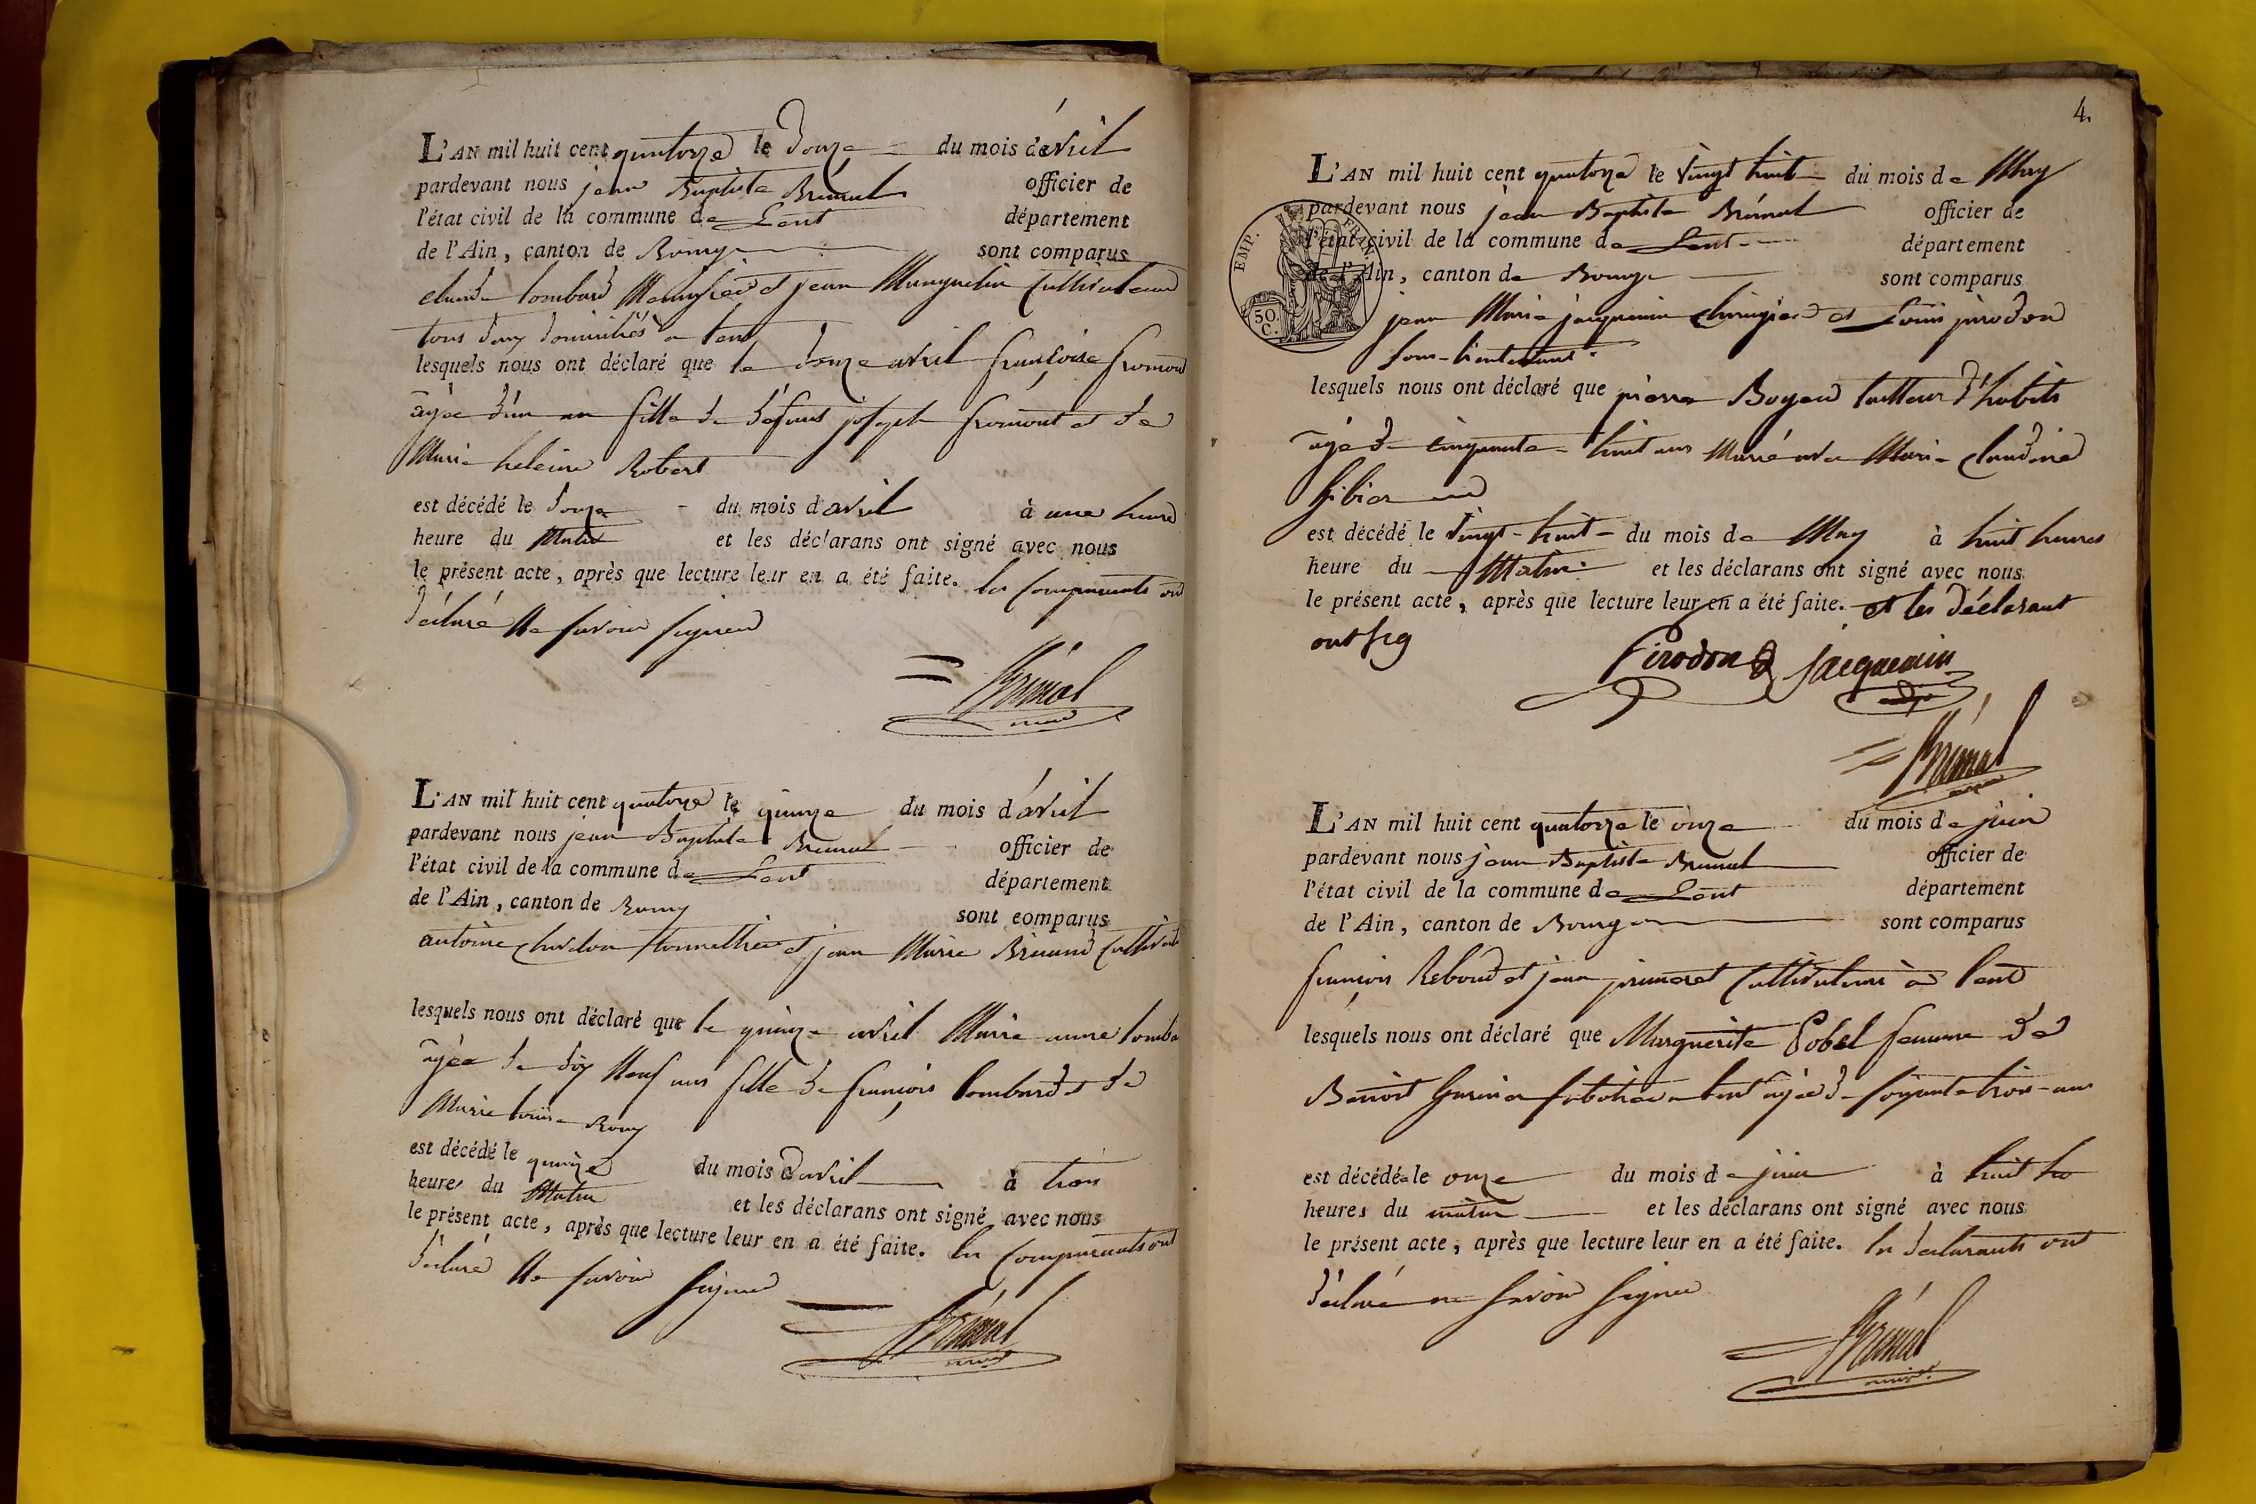 L'AN mil huit cent quatorze le douze du mois d'avril
pardevant nous jean Baptiste Brémal officier de
l'état civil de la commune de Lent département
de l'Ain, canton de Bourg sont comparus
claude Lombard et jean Manguelin Cultivateur
tous deux domiciliés a Lent
lesquels nous ont déclaré que le douze avril françoise fromont
agée d'un an fille de défunt joseph fromont et de
Marie heleine Robert
est décédé le douze du mois d'avril à une heure
heure du Matin et les déclarans ont signé avec nous
le présent acte, après que lecture leur en a été faite. les Comparants ont
déclaré Ne savoir signer
Brémal
L'AN mil huit cent quatorze le quinze du mois d'avril
pardevant nous jean Baptiste Brémal officier de
l'état civil de la commune de Lent département
de l'Ain, canton de Bourg sont comparus
antoine chardon et jean Marie Brevand Cultivat
lesquels nous ont déclaré que le quinze avril Marie anne Lomba
agée de dix Neuf ans fille de françois Lombard et de
Marie Louise Rouy
est décédé le quinze du mois d'avril à trois
heures du Matin et les déclarans ont signé avec nous
le présent acte, après que lecture leur en a été faite. les Comparants ont
déclaré Ne savoir signer
Brémal
4.
L'AN mil huit cent quatorze le vingt huit du mois de May
pardevant nous jean Baptiste Brémal officier de
l'état civil de la commune de Lent département
de l'Ain, canton de Bourg sont comparus
EMP. FRAN.
50. C.
jean Marie jacquemin chirugien et Louis pirodon
sous-lieutenant
lesquels nous ont déclaré que pierre Boyer tailleur d'habits
agé de cinquante huit ans Marié avec Marie claudine
est décédé le vingt-huit du mois de May à huit heures
heure du Matin et les déclarans ont signé avec nous
le présent acte, après que lecture leur en a été faite. et les déclarant
ont sig
Pirodon jacquemin
Brémal
L'AN mil huit cent quatorze le onze du mois de juin
pardevant nous jean Baptiste Brémal officier de
l'état civil de la commune de Lent département
de l'Ain, canton de Bourg sont comparus
françois Reboud et jean Cultivateurs à Lent
lesquels nous ont déclaré que Marguerite Pobel femme de
Benoit Guerin a Lent agée de soixante trois ans
est décédée le onze du mois de juin à huit he
heures du matin et les déclarans ont signé avec nous
le présent acte, après que lecture leur en a été faite. les declarants ont
déclaré ne savoir signer
Brémal